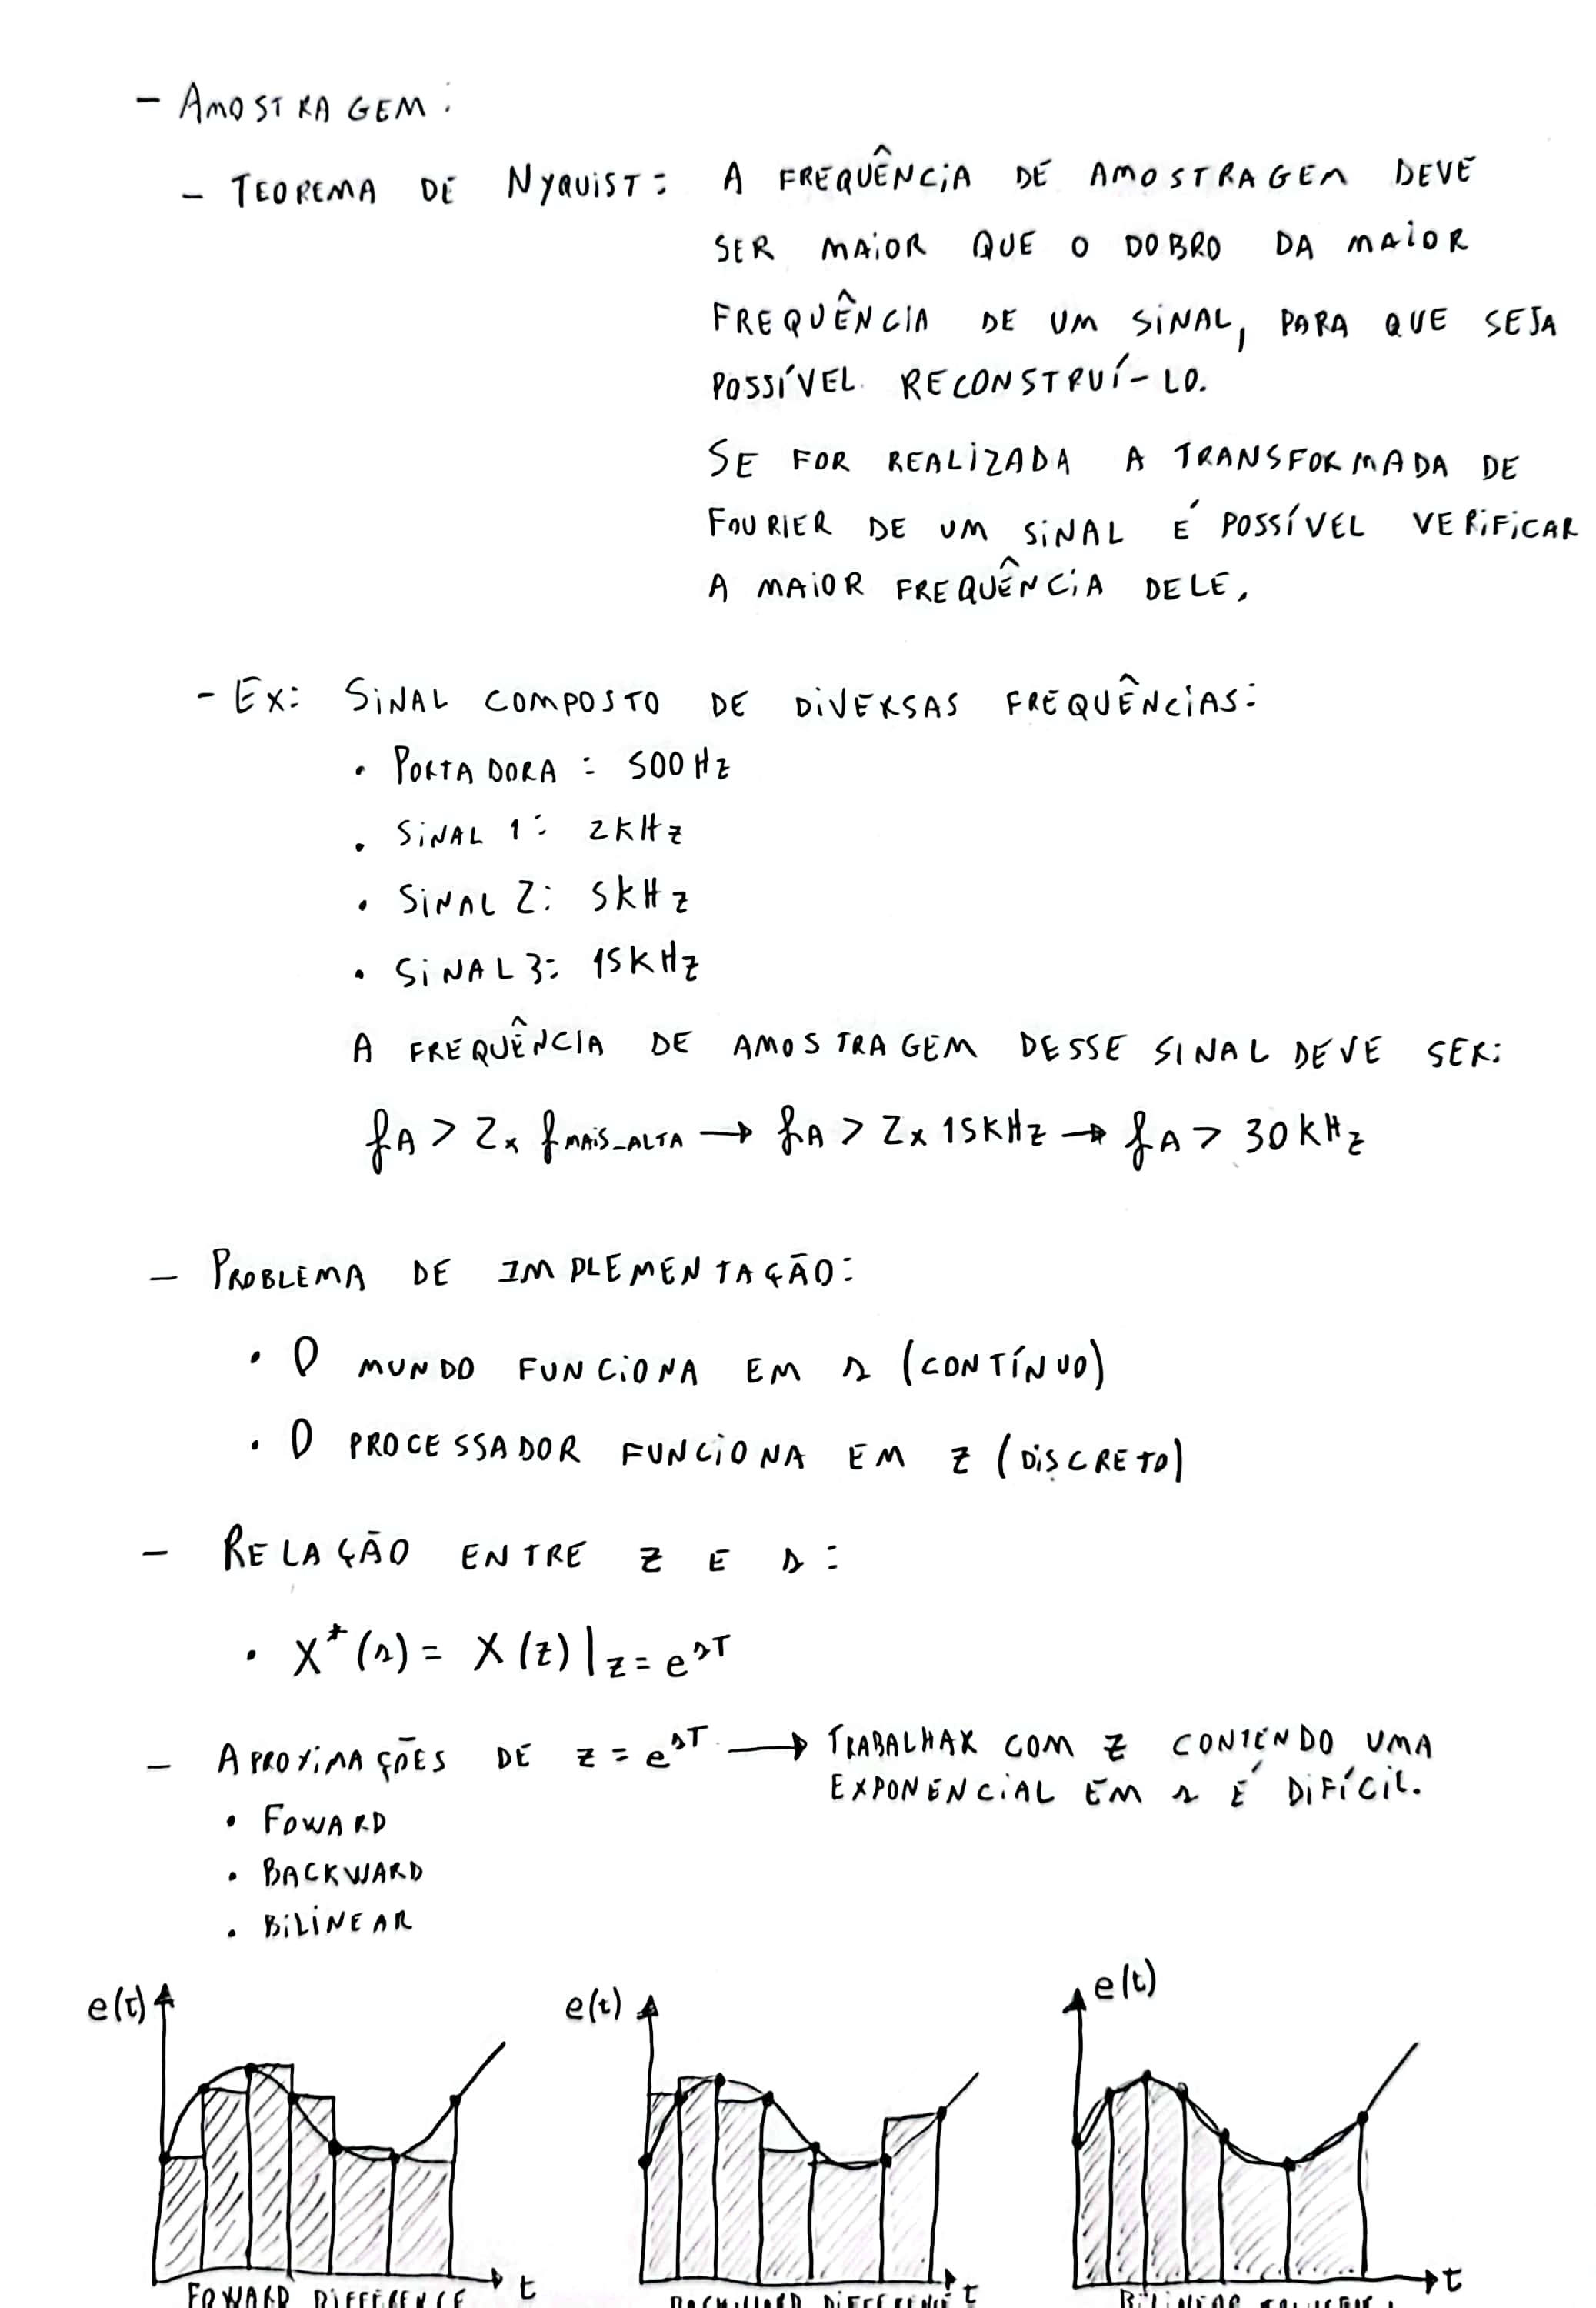 - AMOSTRAGEM:
- TEOREMA DE NYQUIST: A FREQUÊNCIA DE AMOSTRAGEM DEVE
SER MAIOR QUE O DOBRO DA MAIOR
FREQUÊNCIA DE UM SINAL, PARA QUE SEJA
POSSÍVEL RECONSTRUÍ-LO.
SE FOR REALIZADA A TRANSFORMADA DE
FOURIER DE UM SINAL É POSSÍVEL VERIFICAR
A MAIOR FREQUÊNCIA DELE.
- EX: SINAL COMPOSTO DE DIVERSAS FREQUÊNCIAS:
• PORTADORA: 500Hz
• SINAL 1: 2kHz
• SINAL 2: 5kHz
• SINAL 3: 15kHz
A FREQUÊNCIA DE AMOSTRAGEM DESSE SINAL DEVE SER:
fA > 2x fMAIS_ALTA → fA > 2x 15kHz → fA > 30kHz
- PROBLEMA DE IMPLEMENTAÇÃO:
• O MUNDO FUNCIONA EM s (CONTÍNUO)
• O PROCESSADOR FUNCIONA EM z (DISCRETO)
- RELAÇÃO ENTRE z E s:
• X*(s) = X(z)|z=e^sT
- APROXIMAÇÕES DE z = e^sT → TRABALHAR COM z CONTENDO UMA
EXPONENCIAL EM s É DIFÍCIL.
• FOWARD
• BACKWARD
• BILINEAR
e(t) e(t) e(t)
t t t
FOWARD DIFFERENCE BACKWARD DIFFERENCE BILINEAR